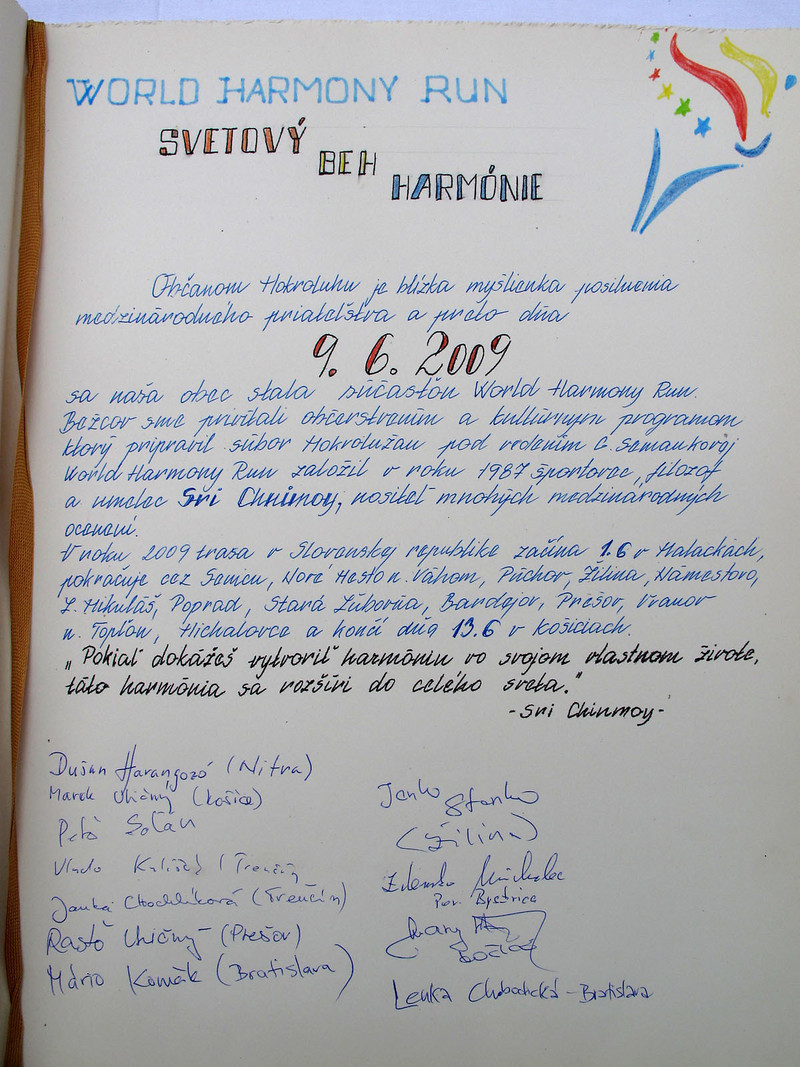 WORLD HARMONY RUN
SVETOVÝ
BEH
HARMÓNIE
Občanom Mokroluhu je blízka myšlienka posilnenia
medzinárodného priateľstva a preto dňa
9. 6. 2009
sa naša obec stala súčasťou World Harmony Run.
Bežcov sme privítali občerstvením a kultúrnym programom
ktorý pripravil súbor Mokrolužan pod vedením C. Semankovej
World Harmony Run založil v roku 1987 športovec, filozof
a umelec Sri Chinmoy, nositeľ mnohých medzinárodných
ocenení.
V roku 2009 trasa v Slovenskej republike začína 1.6 v Malackách,
pokračuje cez Senicu, Nové Mesto n. Váhom, Púchov, Žilina, Námestovo,
L. Mikuláš, Poprad, Stará Ľubovňa, Bardejov, Prešov, Vranov
n. Topľou, Michalovce a končí dňa 13.6 v Košiciach.
„Pokiaľ dokážeš vytvoriť harmóniu vo svojom vlastnom živote,
táto harmónia sa rozšíri do celého sveta."
- Sri Chinmoy -
Dušan Harangozó (Nitra)
Marek Uličný (Košice)
Peťo Solán
Vlado (Trenčín
Janka Chochlíková (Trenčín)
Rasťo Uličný (Prešov)
Mário Komák (Bratislava)
Janko Stanko
(Žilina)
Zdenko Michalec
Pov. Bystrica
Košice
Lenka - Bratislava